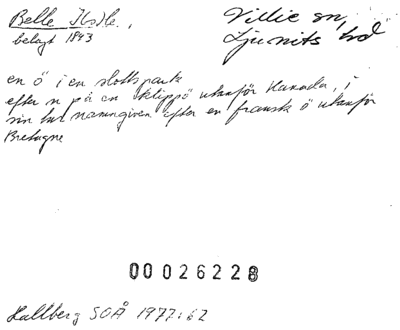 Belle Isle,
belagt 1843
Villie sn,
Ljunits hd
en ö i en slottspark
efter n på en klippö utanför Kanada, i
sin tur namngiven efter en fransk ö utanför
Bretagne
00026228
Hallberg SOÅ 1977:62